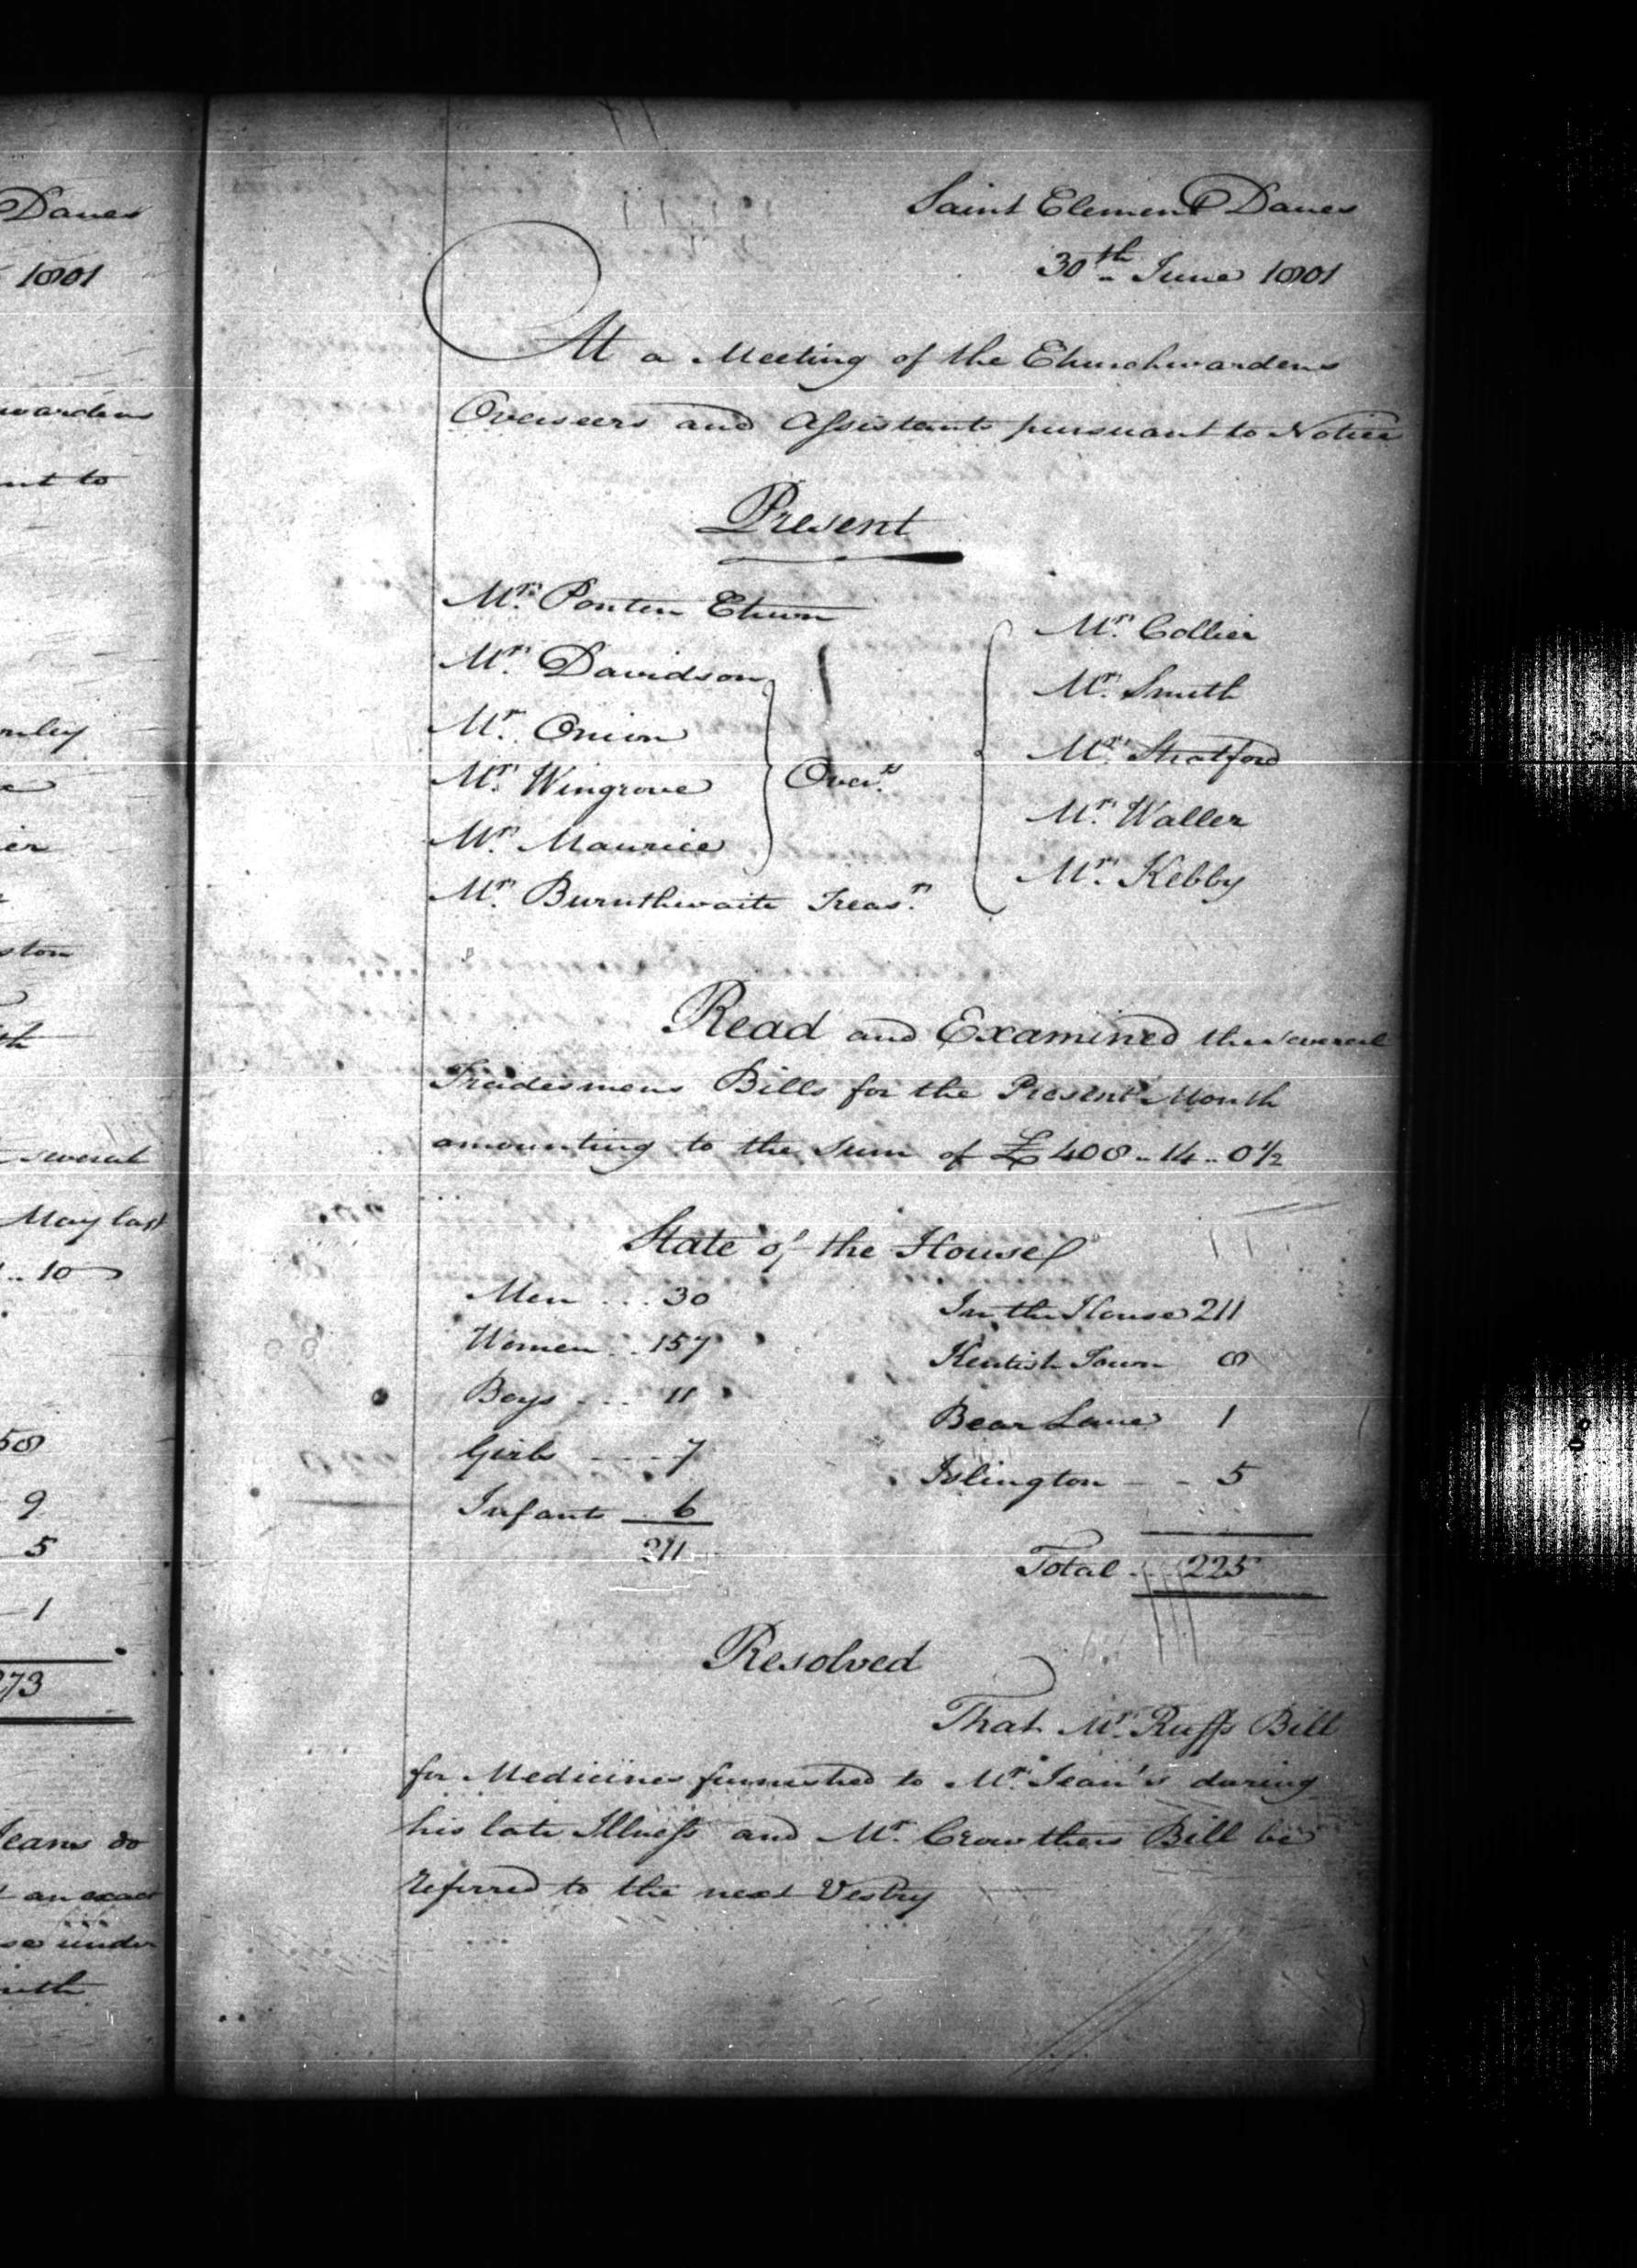 Danes
1801
wardens
nt to
nley
er
ston
th
several
May last
.. 10
58
9
5
1
273
Jeans do
an exact
se under
nth
Saint Clement Danes
30th June 1801
At a Meeting of the Churchwardens
Overseers and Assistants pursuant to Notice
Present
Mr. Ponten Chwn
Mr. Davidson
Mr. Onion
Mr. Wingrove
Mr. Maurice
Overs.
Mr. Burnthwaite Treasr.
Mr. Collier
Mr. Smith
Mr. Stratford
Mr. Waller
Mr. Kebby
Read and Examined the several
Tradesmens Bills for the Present Month
amounting to the Sum of £408 .. 14 .. 0½
State of the House
Men ... 30
Women .. 157
Boys ... 11
Girls ... 7
Infants .. 6
211
In the House 211
Kentish Town 8
Bear Lane 1
Islington - - 5
Total ... 225
Resolved
That Mr. Ruffs Bill
for Medicines furnished to Mr. Jean's during
his late Illness and Mr. Crowthers Bill be
referred to the next Vestry